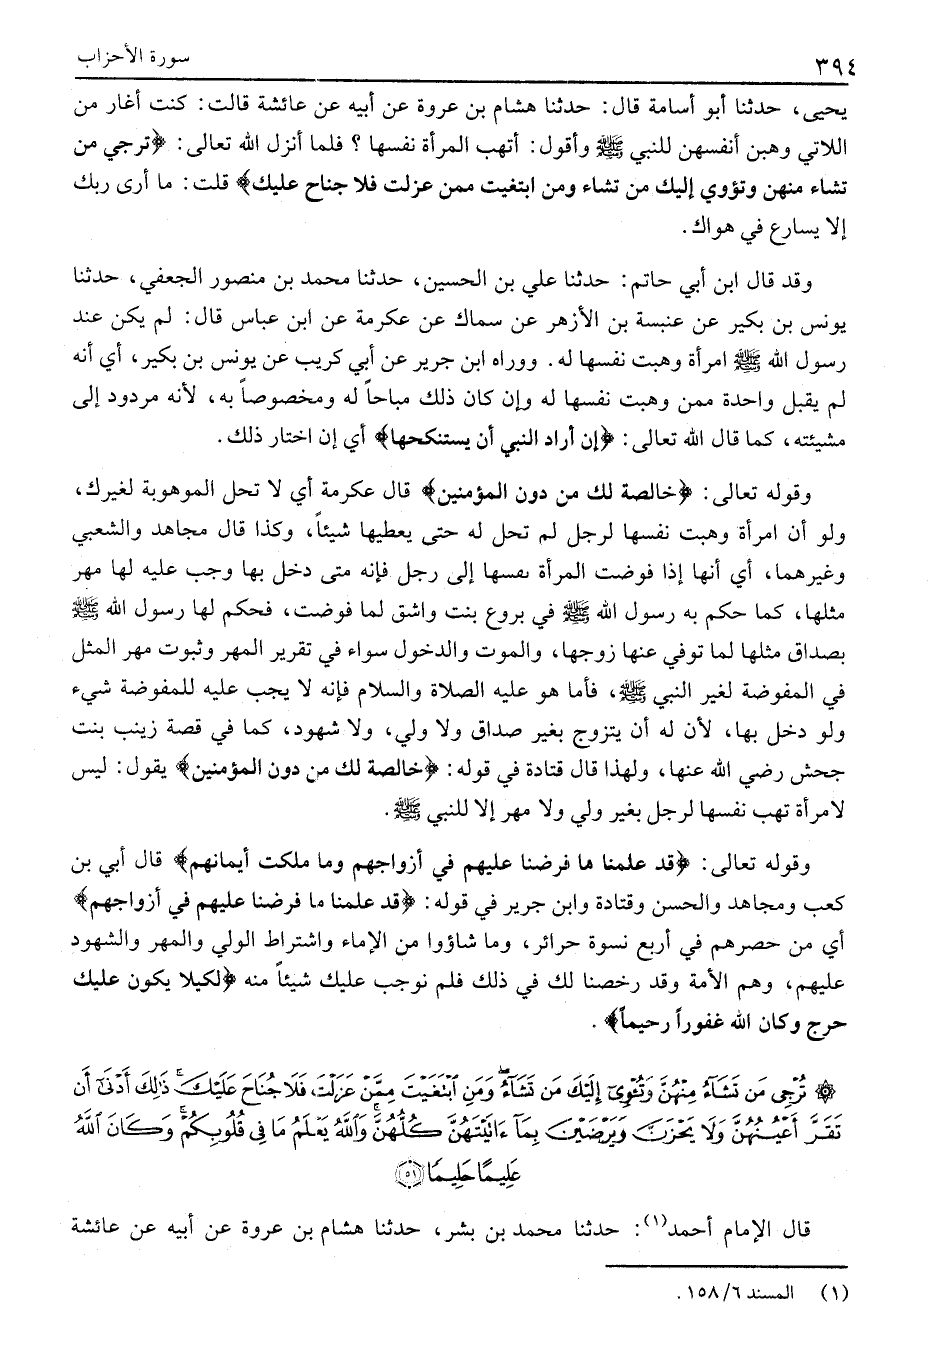 ٣٩٤ سورة الأحزاب
يحيى، حدثنا أبو أسامة قال: حدثنا هشام بن عروة عن أبيه عن عائشة قالت: كنت أغار من
اللاتي وهبن أنفسهن للنبي ﷺ وأقول: أتهب المرأة نفسها ؟ فلما أنزل الله تعالى: ﴿ترجي من
تشاء منهن وتؤوي إليك من تشاء ومن ابتغيت ممن عزلت فلا جناح عليك﴾ قلت: ما أرى ربك
إلا يسارع في هواك.
وقد قال ابن أبي حاتم: حدثنا علي بن الحسين، حدثنا محمد بن منصور الجعفي، حدثنا
يونس بن بكير عن عنبسة بن الأزهر عن سماك عن عكرمة عن ابن عباس قال: لم يكن عند
رسول الله ﷺ امرأة وهبت نفسها له. ووراه ابن جرير عن أبي كريب عن يونس بن بكير، أي أنه
لم يقبل واحدة ممن وهبت نفسها له وإن كان ذلك مباحاً له ومخصوصاً به، لأنه مردود إلى
مشيئته، كما قال الله تعالى: ﴿إن أراد النبي أن يستنكحها﴾ أي إن اختار ذلك.
وقوله تعالى: ﴿خالصة لك من دون المؤمنين﴾ قال عكرمة أي لا تحل الموهوبة لغيرك،
ولو أن امرأة وهبت نفسها لرجل لم تحل له حتى يعطيها شيئاً، وكذا قال مجاهد والشعبي
وغيرهما، أي أنها إذا فوضت المرأة نفسها إلى رجل فإنه متى دخل بها وجب عليه لها مهر
مثلها، كما حكم به رسول الله ﷺ في بروع بنت واشق لما فوضت، فحكم لها رسول الله ﷺ
بصداق مثلها لما توفي عنها زوجها، والموت والدخول سواء في تقرير المهر وثبوت مهر المثل
في المفوضة لغير النبي ﷺ، فأما هو عليه الصلاة والسلام فإنه لا يجب عليه للمفوضة شيء
ولو دخل بها، لأن له أن يتزوج بغير صداق ولا ولي، ولا شهود، كما في قصة زينب بنت
جحش رضي الله عنها، ولهذا قال قتادة في قوله: ﴿خالصة لك من دون المؤمنين﴾ يقول: ليس
لامرأة تهب نفسها لرجل بغير ولي ولا مهر إلا للنبي ﷺ.
وقوله تعالى: ﴿قد علمنا ما فرضنا عليهم في أزواجهم وما ملكت أيمانهم﴾ قال أبي بن
كعب ومجاهد والحسن وقتادة وابن جرير في قوله: ﴿قد علمنا ما فرضنا عليهم في أزواجهم﴾
أي من حصرهم في أربع نسوة حرائر، وما شاؤوا من الإماء واشتراط الولي والمهر والشهود
عليهم، وهم الأمة وقد رخصنا لك في ذلك فلم نوجب عليك شيئاً منه ﴿لكيلا يكون عليك
حرج وكان الله غفوراً رحيماً﴾ .
۞ تُرْجِى مَن تَشَآءُ مِنْهُنَّ وَتُـْٔوِىٓ إِلَيْكَ مَن تَشَآءُ وَمَنِ ٱبْتَغَيْتَ مِمَّنْ عَزَلْتَ فَلَا جُنَاحَ عَلَيْكَ ذَٰلِكَ أَدْنَىٰٓ أَن
تَقَرَّ أَعْيُنُهُنَّ وَلَا يَحْزَنَّ وَيَرْضَيْنَ بِمَآ ءَاتَيْتَهُنَّ كُلُّهُنَّ وَٱللَّهُ يَعْلَمُ مَا فِى قُلُوبِكُمْ وَكَانَ ٱللَّهُ
عَلِيمًا حَلِيمًا ﴿٥١﴾
قال الإمام أحمد(١): حدثنا محمد بن بشر، حدثنا هشام بن عروة عن أبيه عن عائشة
(١) المسند ١٥٨/٦.